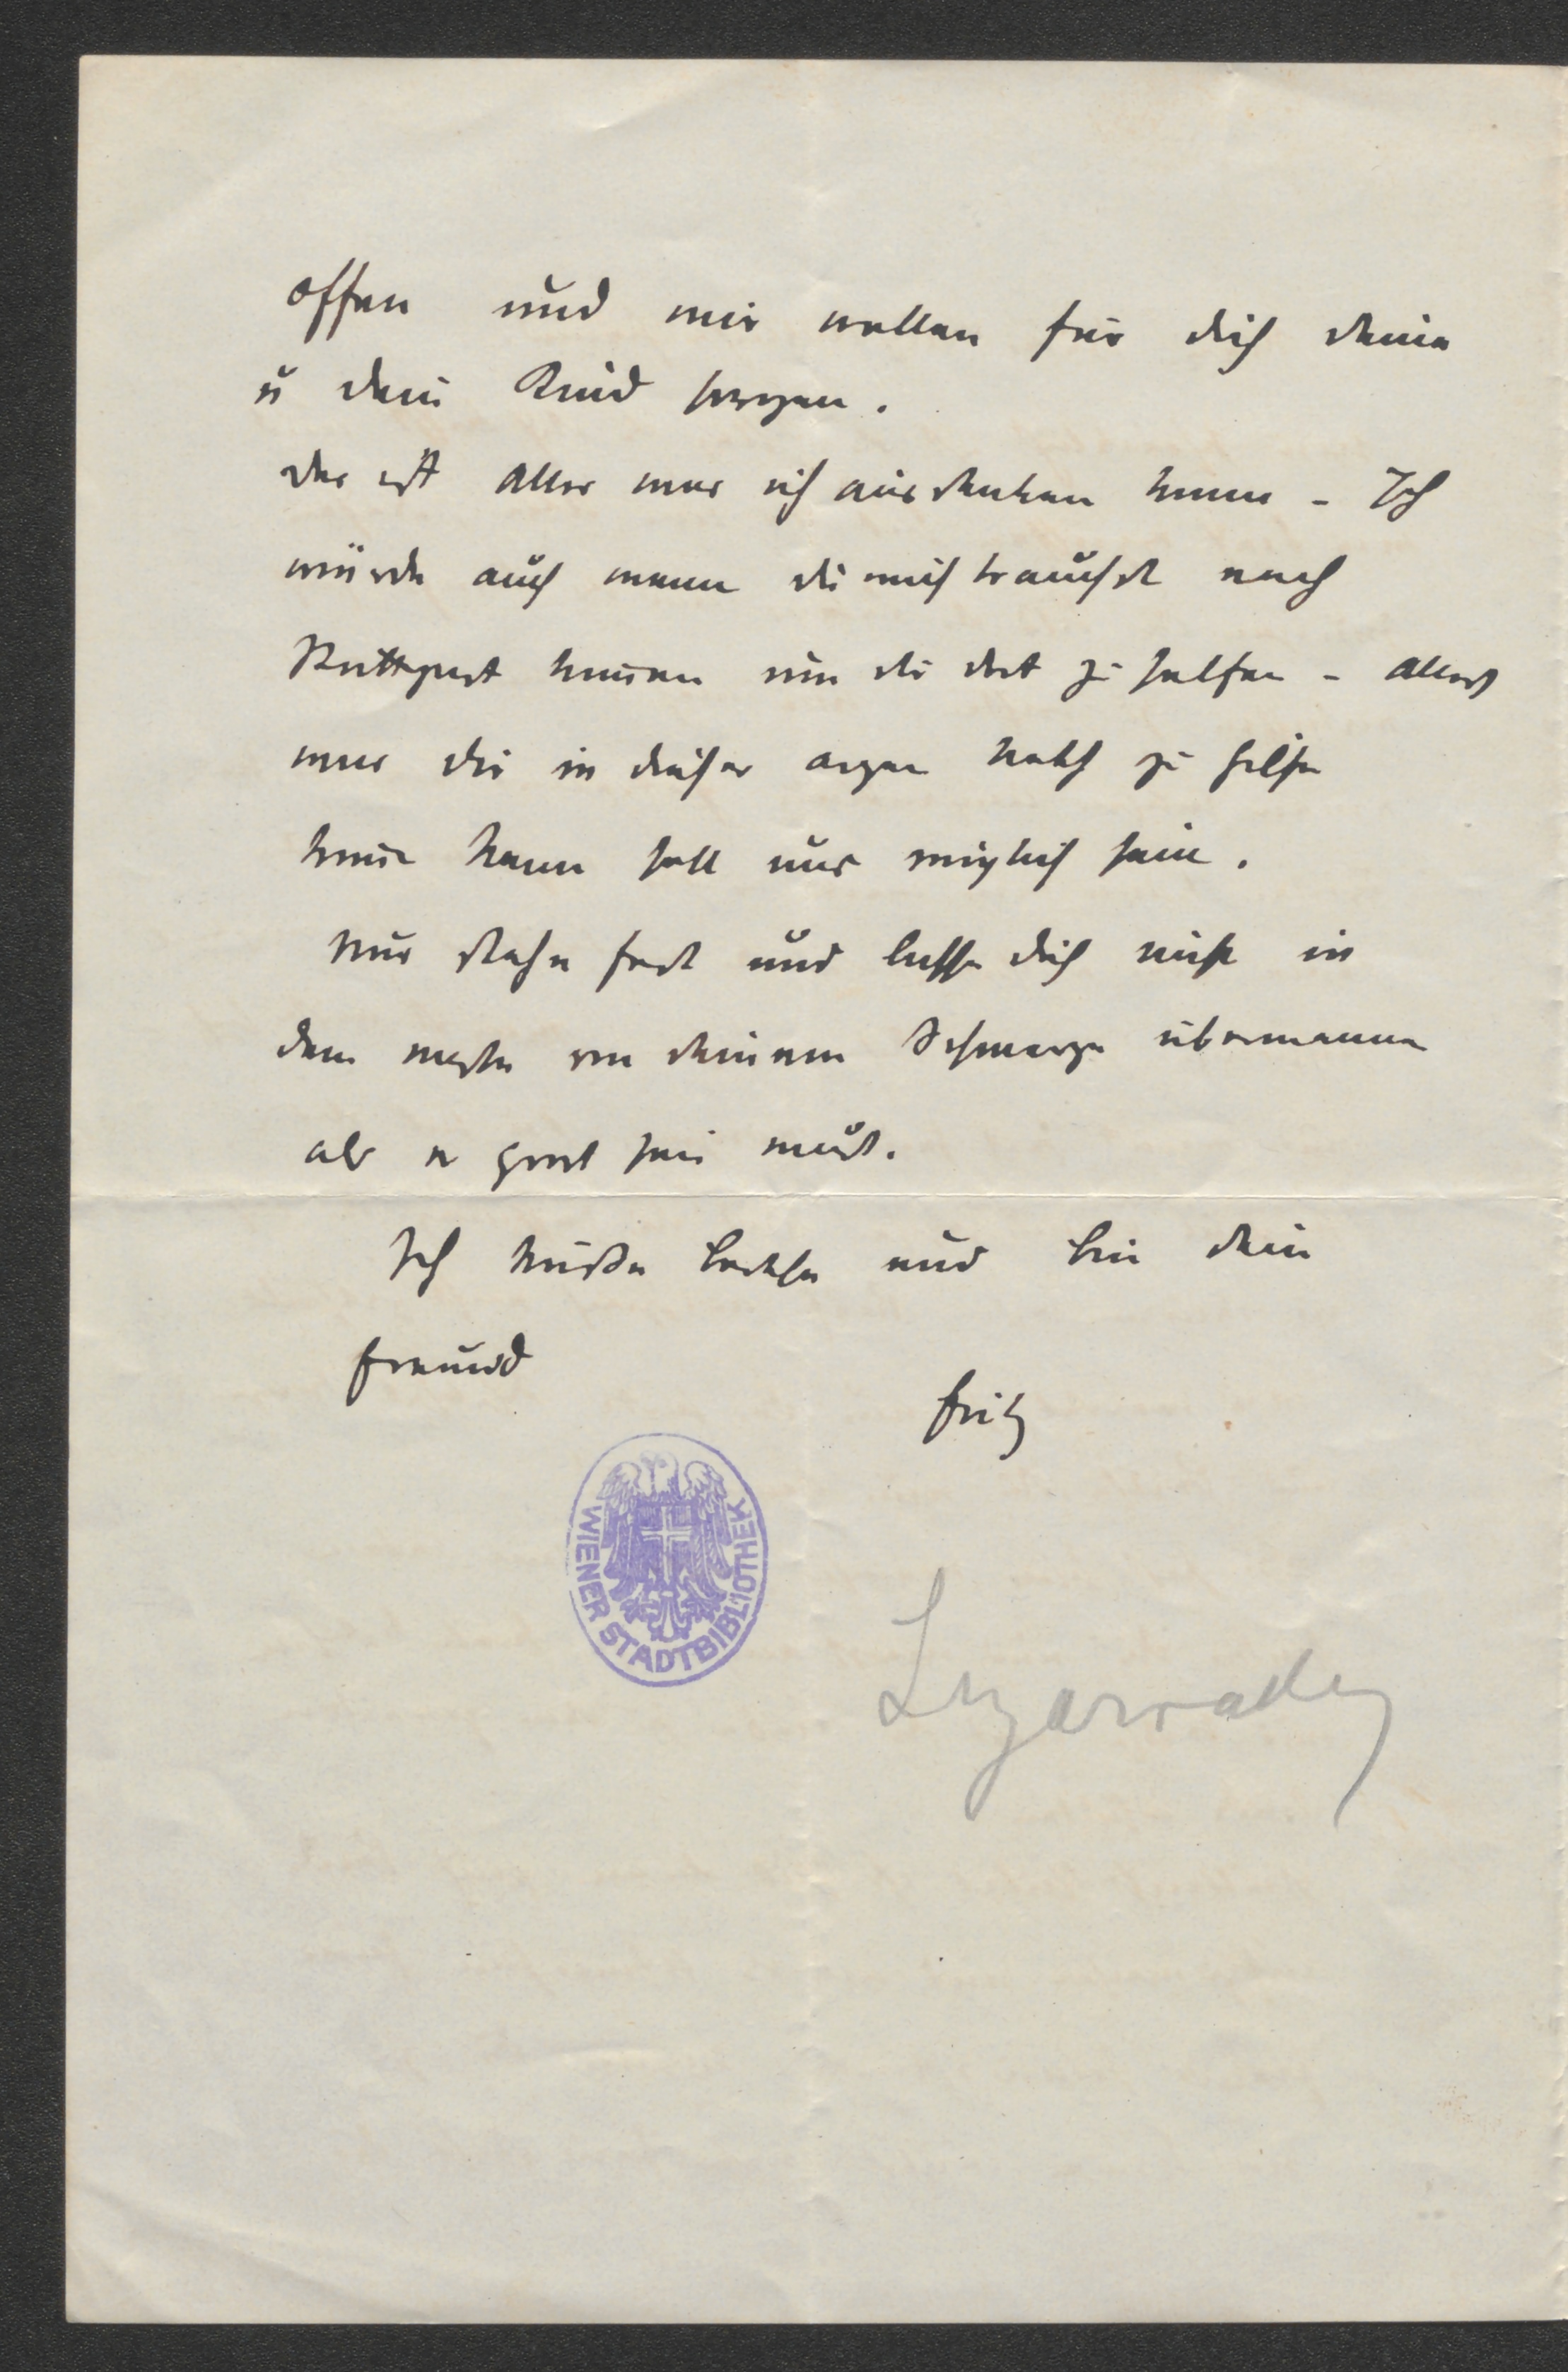 offen und wir wollen für dich deine
u dein Kind sorgen.
das ist alles was ich ausdenken kann - Ich
würde auch wenn du mich brauchst nach
Stuttgart kommen um dir dort zu helfen - alles
was dir in dieser argen Noth zu Hilfe
kommen kann soll uns möglich sein.
Nur stehe fest und lasse dich nicht in
dem von deinem Schmerze übermannen
als er groß sein muß.
Ich küsse und bin dein
Freund
Fritz
WIENER STADTBIBLIOTHEK